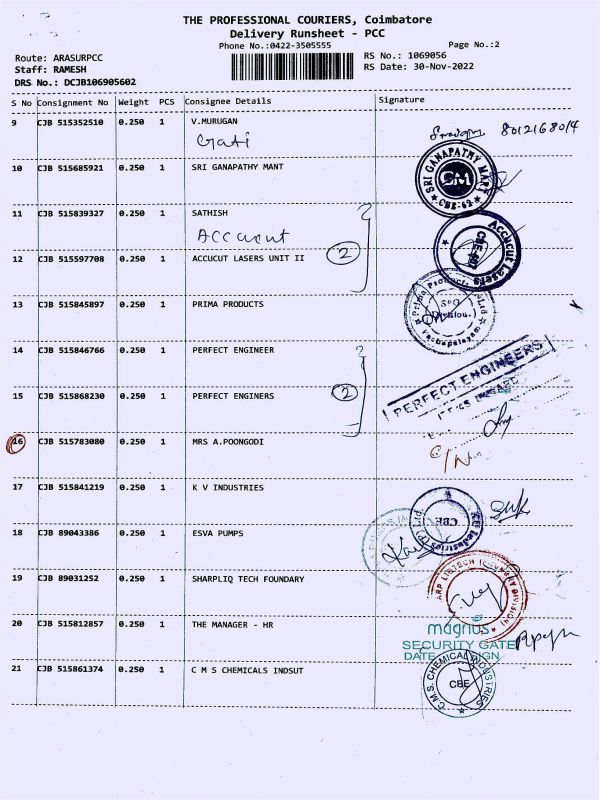 THE PROFESSIONAL COURIERS, Coimbatore
Delivery Runsheet - PCC
Phone No.:0422-3505555
Page No.:2
Route: ARASURPCC
RS No.: 1069056
Staff: RAMESH
RS Date: 30-Nov-2022
DRS No.: DCJB106905602
S No Consignment No Weight PCS Consignee Details Signature
9 CJB 515352510 0.250 1 V.MURUGAN
Gati
8012168014
10 CJB 515685921 0.250 1 SRI GANAPATHY MANT
SRI GANAPATHY MART
SGM
CBE-62
11 CJB 515839327 0.250 1 SATHISH
Accucut
Accucut Lasers
12 CJB 515597708 0.250 1 ACCUCUT LASERS UNIT II
2
13 CJB 515845897 0.250 1 PRIMA PRODUCTS
14 CJB 515846766 0.250 1 PERFECT ENGINEER
PERFECT ENGINEERS
15 CJB 515868230 0.250 1 PERFECT ENGINERS
2
16 CJB 515783080 1 MRS A.POONGODI
0.250
17 CJB 515841219 0.250 1 K V INDUSTRIES
18 CJB 89043386 0.250 1 ESVA PUMPS
CBE
19 CJB 89031252 0.250 1 SHARPLIQ TECH FOUNDARY
20 CJB 515812857 0.250 1 THE MANAGER - HR
magnus
SECURITY GATE
DATE SIGN
21 CJB 515861374 0.250 1 C M S CHEMICALS INDSUT
C.M.S. CHEMICAL INDUSTRIES
CBE